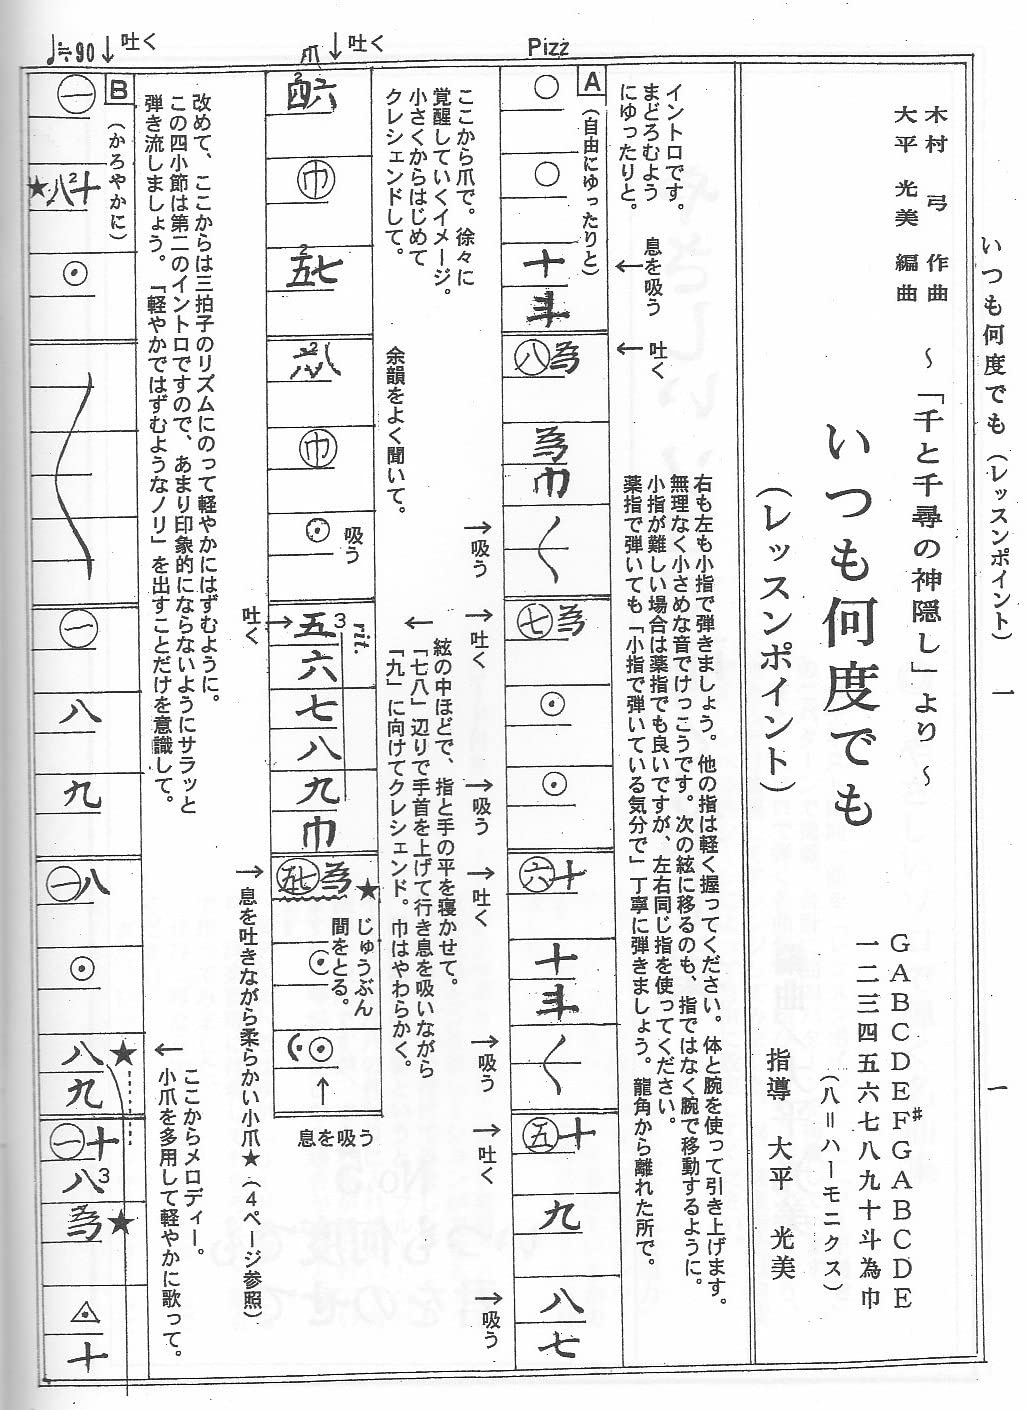 いつも何度でも（レッスンポイント） 一
一
木村 弓 作曲
大平 光美 編曲
～「千と千尋の神隠し」より～
いつも何度でも
（レッスンポイント）
G A B C D E F♯ G A B C D E
一二三四五六七八九十斗為巾
（八＝ハーモニクス）
指導 大平 光美
イントロです。
まどろむよう
にゆったりと。
息を吸う
吐く
右も左も小指で弾きましょう。他の指は軽く握ってください。体と腕を使って引き上げます。
無理なく小さめな音でけっこうです。次の絃に移るのも、指ではなく腕で移動するように。
小指が難しい場合は薬指でも良いですが、左右同じ指を使ってください。
薬指で弾いても「小指で弾いている気分で」丁寧に弾きましょう。龍角から離れた所で。
Pizz
A
（自由にゆったりと）
○
○
十
斗
八 為
為
巾
く
七 為
⊙
⊙
六 十
十
斗
く
五 十
九
八
七
吸う
吐く
吸う
吐く
吸う
吐く
吸う
ここから爪で。徐々に
覚醒していくイメージ。
小さくからはじめて
クレシェンドして。
余韻をよく聞いて。
絃の中ほどで、指と手の平を寝かせて。
「七八」辺りで手首を上げて行き息を吸いながら
「九」に向けてクレシェンド。巾はやわらかく。
爪
吐く
四 2 六
巾
五 2 七
六 2 八
巾
⊙
吸う
吐く
rit.
五 3
六
七
八
九
巾
五 七 為 ★
じゅうぶん
間をとる。
⊙
⊙
息を吸う
息を吐きながら柔らかい小爪★（4ページ参照）
改めて、ここからは三拍子のリズムにのって軽やかにはずむように。
この四小節は第二のイントロですので、あまり印象的にならないようにサラッと
弾き流しましょう。「軽やかではずむようなノリ」を出すことだけを意識して。
ここからメロディー。
小爪を多用して軽やかに歌って。
♩≒90
吐く
B
（かろやかに）
一
★ 八 2 十
⊙
一
八
九
一 八
⊙
八 ★
九
一 十
八 3
為 ★
十